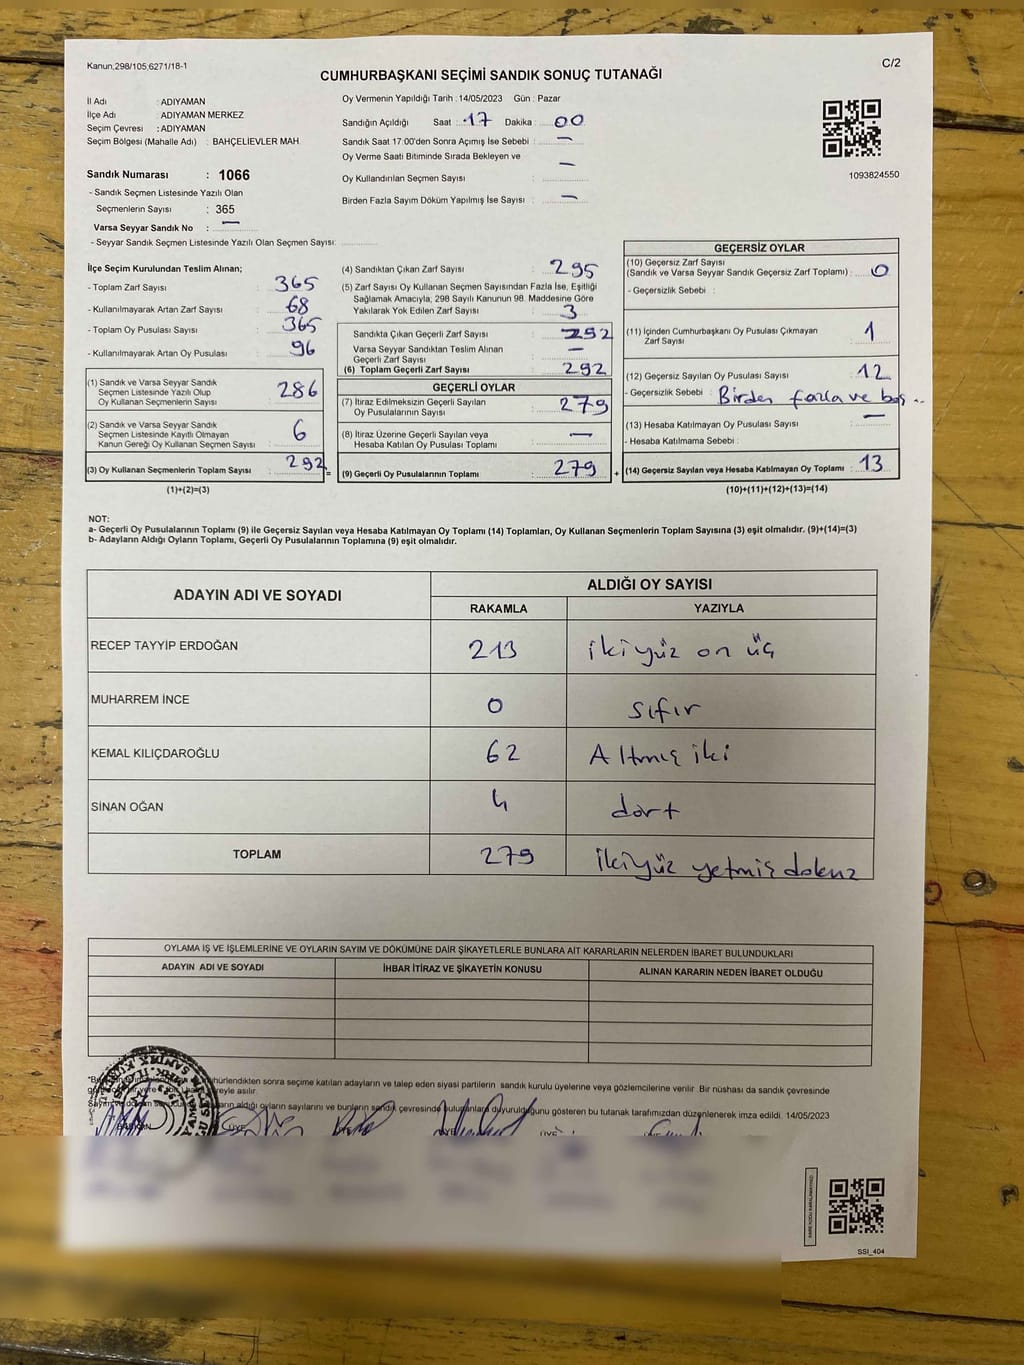 Kanun,298/105,6271/18-1
C/2
CUMHURBAŞKANI SEÇİMİ SANDIK SONUÇ TUTANAĞI
İl Adı : ADIYAMAN
İlçe Adı : ADIYAMAN MERKEZ
Seçim Çevresi : ADIYAMAN
Seçim Bölgesi (Mahalle Adı) : BAHÇELİEVLER MAH
Oy Vermenin Yapıldığı Tarih : 14/05/2023 Gün : Pazar
Sandığın Açıldığı Saat : 17 Dakika : 00
Sandık Saat 17:00'den Sonra Açımış İse Sebebi : —
Oy Verme Saati Bitiminde Sırada Bekleyen ve —
Oy Kullandırılan Seçmen Sayısı :
Birden Fazla Sayım Döküm Yapılmış İse Sayısı : —
1093824550
Sandık Numarası : 1066
- Sandık Seçmen Listesinde Yazılı Olan
Seçmenlerin Sayısı : 365
Varsa Seyyar Sandık No : —
- Seyyar Sandık Seçmen Listesinde Yazılı Olan Seçmen Sayısı:
İlçe Seçim Kurulundan Teslim Alınan;
- Toplam Zarf Sayısı : 365
- Kullanılmayarak Artan Zarf Sayısı : 68
- Toplam Oy Pusulası Sayısı : 365
- Kullanılmayarak Artan Oy Pusulası : 96
(1) Sandık ve Varsa Seyyar Sandık
Seçmen Listesinde Yazılı Olup
Oy Kullanan Seçmenlerin Sayısı : 286
(2) Sandık ve Varsa Seyyar Sandık
Seçmen Listesinde Kayıtlı Olmayan
Kanun Gereği Oy Kullanan Seçmen Sayısı : 6
(3) Oy Kullanan Seçmenlerin Toplam Sayısı : 292
(1)+(2)=(3)
=
(4) Sandıktan Çıkan Zarf Sayısı : 295
(5) Zarf Sayısı Oy Kullanan Seçmen Sayısından Fazla İse, Eşitliği
Sağlamak Amacıyla, 298 Sayılı Kanunun 98. Maddesine Göre
Yakılarak Yok Edilen Zarf Sayısı : 3
Sandıkta Çıkan Geçerli Zarf Sayısı : 292
Varsa Seyyar Sandıktan Teslim Alınan
Geçerli Zarf Sayısı : —
(6) Toplam Geçerli Zarf Sayısı : 292
GEÇERLİ OYLAR
(7) İtiraz Edilmeksizin Geçerli Sayılan
Oy Pusulalarının Sayısı : 279
(8) İtiraz Üzerine Geçerli Sayılan veya
Hesaba Katılan Oy Pusulası Toplamı : —
(9) Geçerli Oy Pusulalarının Toplamı : 279
+
GEÇERSİZ OYLAR
(10) Geçersiz Zarf Sayısı
(Sandık ve Varsa Seyyar Sandık Geçersiz Zarf Toplamı) : 0
- Geçersizlik Sebebi :
(11) İçinden Cumhurbaşkanı Oy Pusulası Çıkmayan
Zarf Sayısı : 1
(12) Geçersiz Sayılan Oy Pusulası Sayısı : 12
- Geçersizlik Sebebi : Birden fazla ve boş ..
(13) Hesaba Katılmayan Oy Pusulası Sayısı : —
- Hesaba Katılmama Sebebi :
(14) Geçersiz Sayılan veya Hesaba Katılmayan Oy Toplamı : 13
(10)+(11)+(12)+(13)=(14)
NOT:
a- Geçerli Oy Pusulalarının Toplamı (9) ile Geçersiz Sayılan veya Hesaba Katılmayan Oy Toplamı (14) Toplamları, Oy Kullanan Seçmenlerin Toplam Sayısına (3) eşit olmalıdır. (9)+(14)=(3)
b- Adayların Aldığı Oyların Toplamı, Geçerli Oy Pusulalarının Toplamına (9) eşit olmalıdır.
ADAYIN ADI VE SOYADI
ALDIĞI OY SAYISI
RAKAMLA YAZIYLA
RECEP TAYYİP ERDOĞAN 213 ikiyüz on üç
MUHARREM İNCE 0 sıfır
KEMAL KILIÇDAROĞLU 62 Altmış iki
SİNAN OĞAN 4 dört
TOPLAM 279 ikiyüz yetmiş dokuz
OYLAMA İŞ VE İŞLEMLERİNE VE OYLARIN SAYIM VE DÖKÜMÜNE DAİR ŞİKAYETLERLE BUNLARA AİT KARARLARIN NELERDEN İBARET BULUNDUKLARI
ADAYIN ADI VE SOYADI İHBAR İTİRAZ VE ŞİKAYETİN KONUSU ALINAN KARARIN NEDEN İBARET OLDUĞU
mühürlendikten sonra seçime katılan adayların ve talep eden siyasi partilerin sandık kurulu üyelerine veya gözlemcilerine verilir. Bir nüshası da sandık çevresinde
asılır.
aldığı oyların sayılarını ve bunların sandık çevresinde bulunanlara duyurulduğunu gösteren bu tutanak tarafımızdan düzenlenerek imza edildi. 14/05/2023
SSİ_404